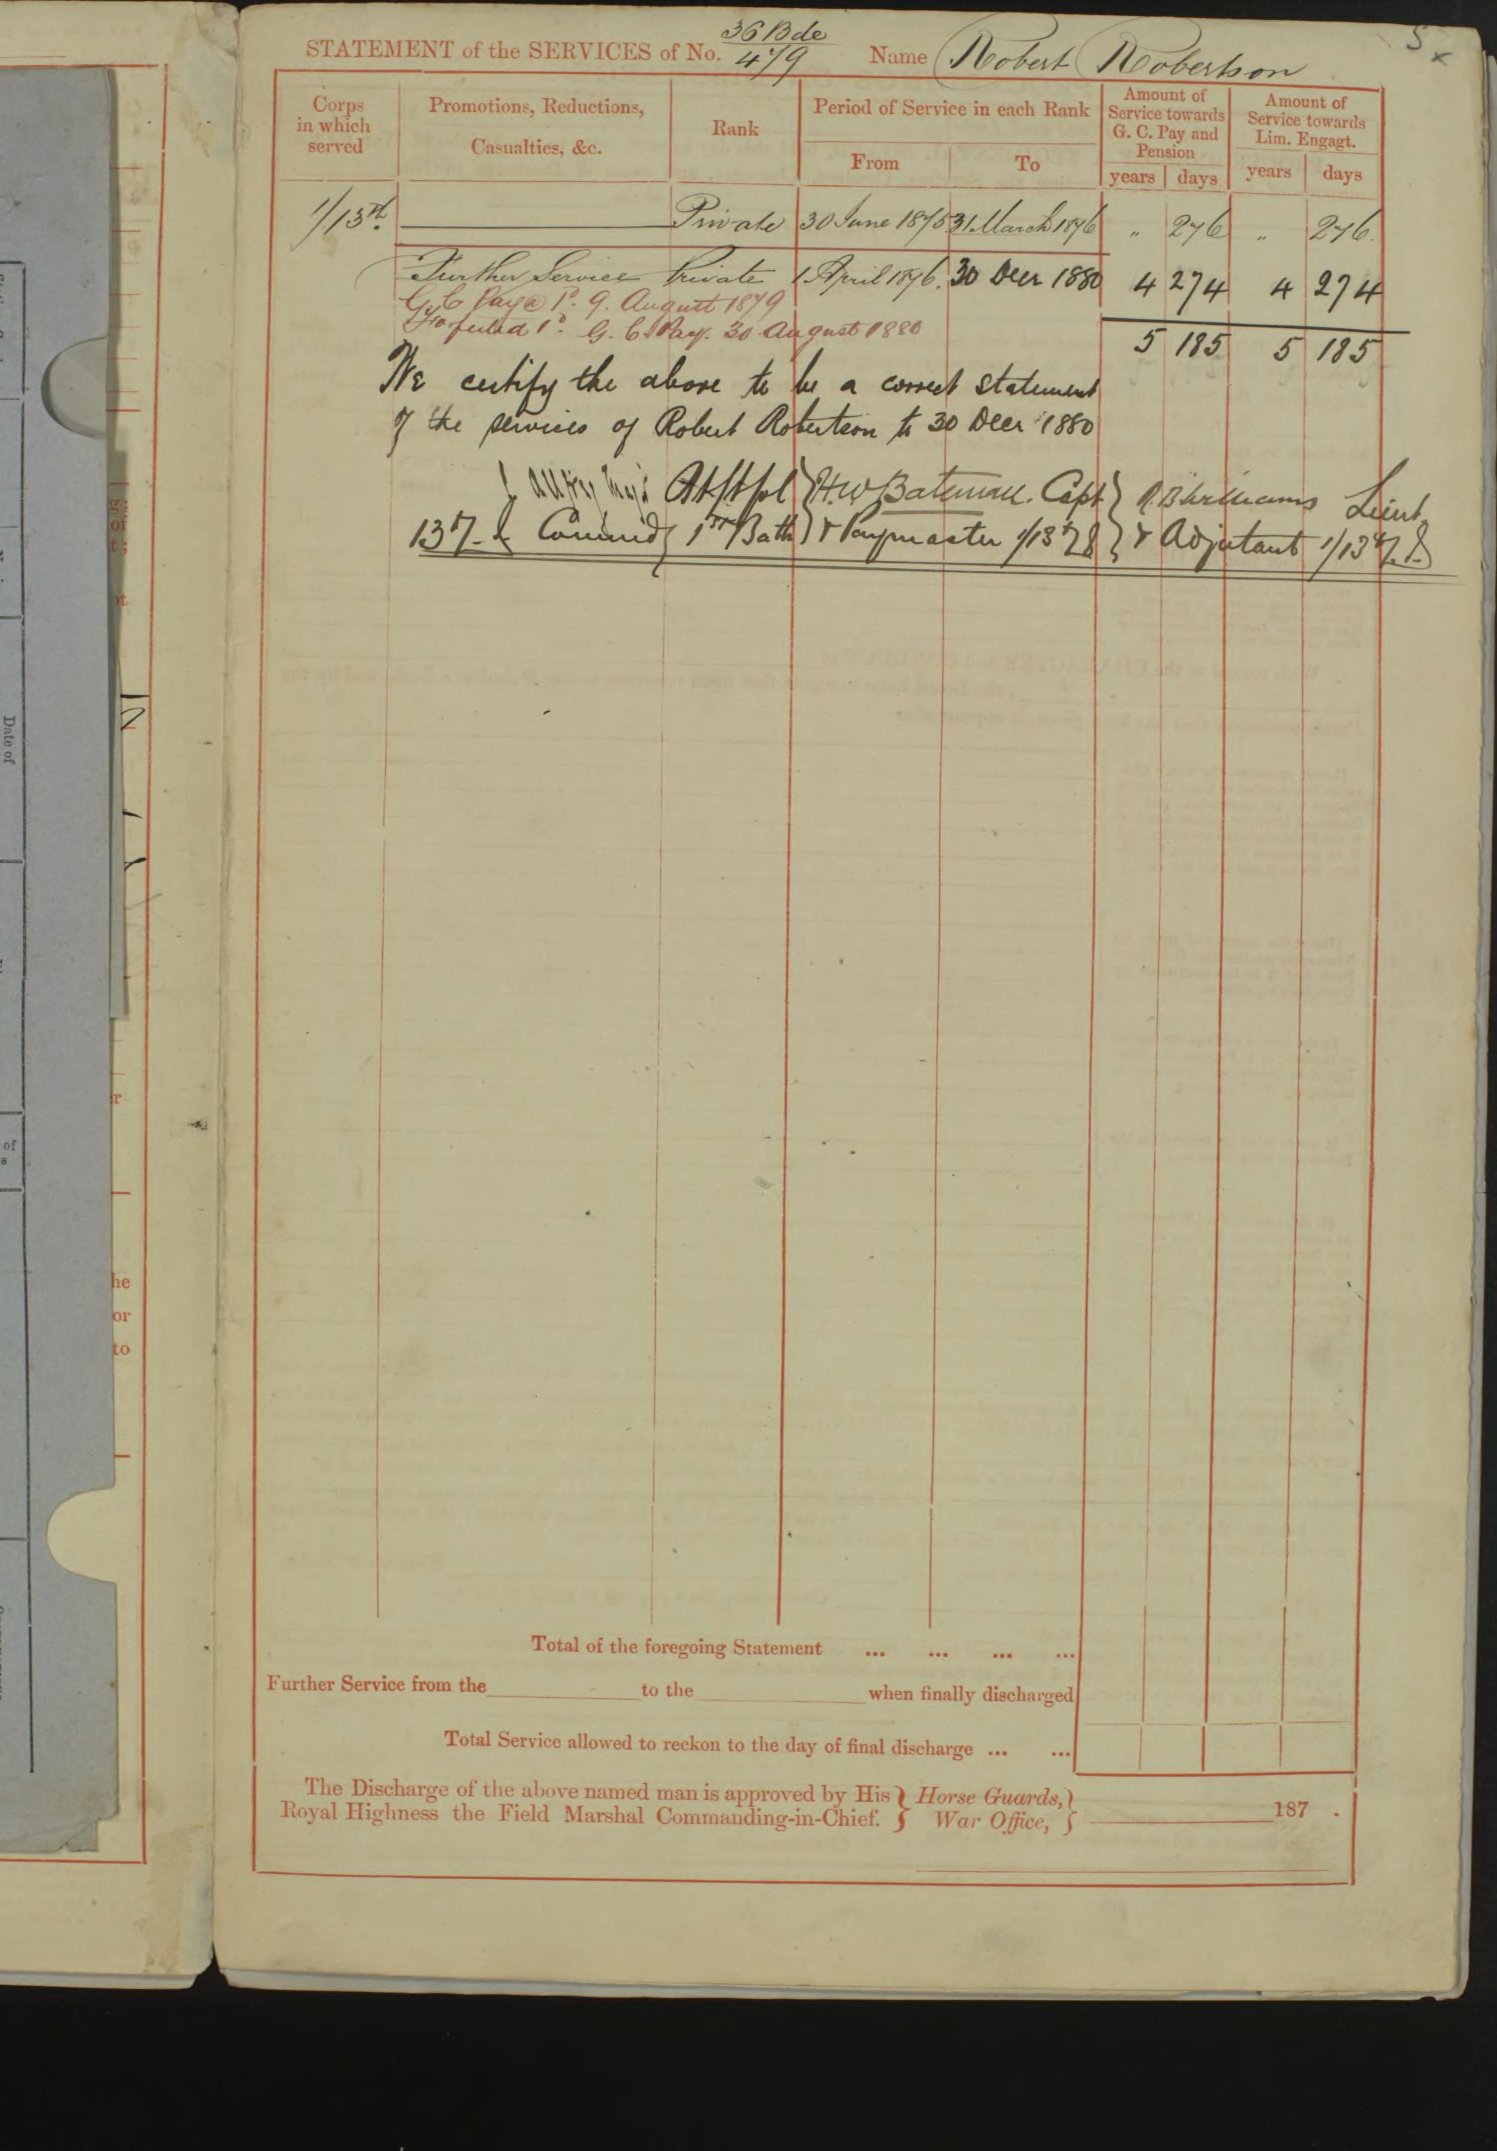 5
36 Bde
STATEMENT of the SERVICES of No. 479 Name Robert Robertson
Corps in which served
Promotions, Reductions, Casualties, &c.
Rank
Period of Service in each Rank
From To
Amount of Service towards G. C. Pay and Pension
years days
Amount of Service towards Lim. Engagt.
years days
1/13th Private 30 June 1875 31 March 1876 " 276 " 276.
Further Service Private 1 April 1876. 30 Decr 1880 4 274 4 274
G. C Pay @ 1d. 9. August 1879
Forfeited 1d. G. C. Pay. 30 August 1880
5 185 5 185
We certify the above to be a correct statement
of the services of Robert Robertson to 30 Decr 1880
H. W Bateman. Capt Williams Lieut
13th Commdg 1st Battn & Paymaster 1/13th & Adjutant 1/13th
Total of the foregoing Statement ... ... ... ...
Further Service from the to the when finally discharged
Total Service allowed to reckon to the day of final discharge ... ...
The Discharge of the above named man is approved by His Horse Guards,
Royal Highness the Field Marshal Commanding-in-Chief. War Office, 187 .
Date of
of
he
or
to